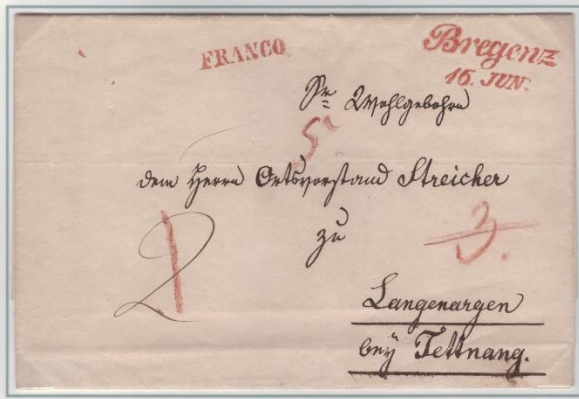 FRANCO
Bregenz
16. JUN.
Sr Wohlgebohrn
5
dem Herrn Ortsvorstand Streicher
zu
3.
2
1
Langenargen
bey Tettnang.